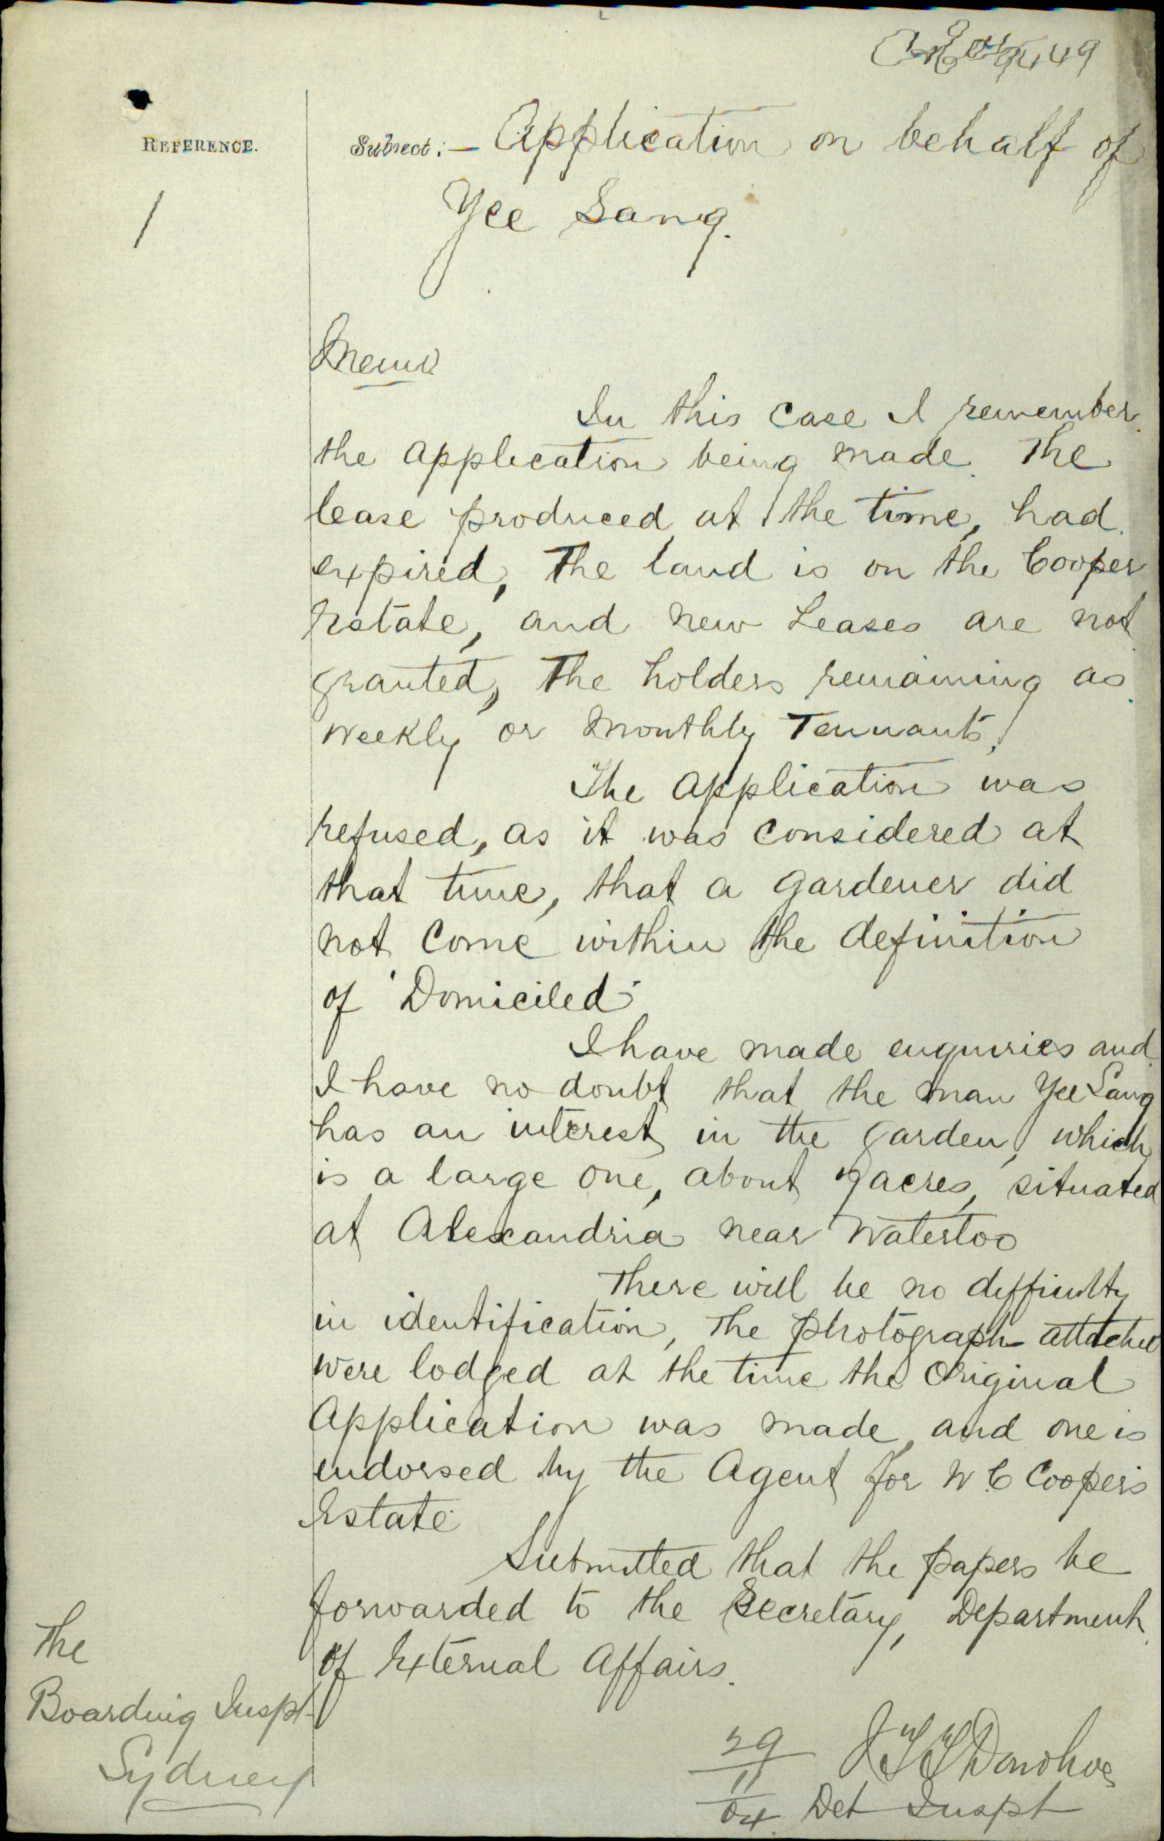 9449
REFERENCE.
Subject:— Application on behalf of
1
Yee Sang.
Memo
In this case I remember
the application being made. The
lease produced at the time, had
expired, The land is on the Cooper
Estate, and new Leases are not
granted, The holders remaining as
weekly or monthly Tennants.
The application was
refused, as it was considered at
that time, that a gardener did
not come within the definition
of 'Domiciled'
I have made enquiries and
I have no doubt that the man Yee Sang
has an interest in the garden, which
is a large one, about 9 acres, situated
at Alexandria near Waterloo
There will be no difficulty
in identification, The photograph attached
were lodged at the time the original
Application was made, and one is
endorsed by the Agent for W C Cooper's
Estate.
Submitted that the papers be
forwarded to the Secretary, Department
of External Affairs.
The
Boarding Inspt
Sydney
29
11
04.
Donohoe
Det Inspt